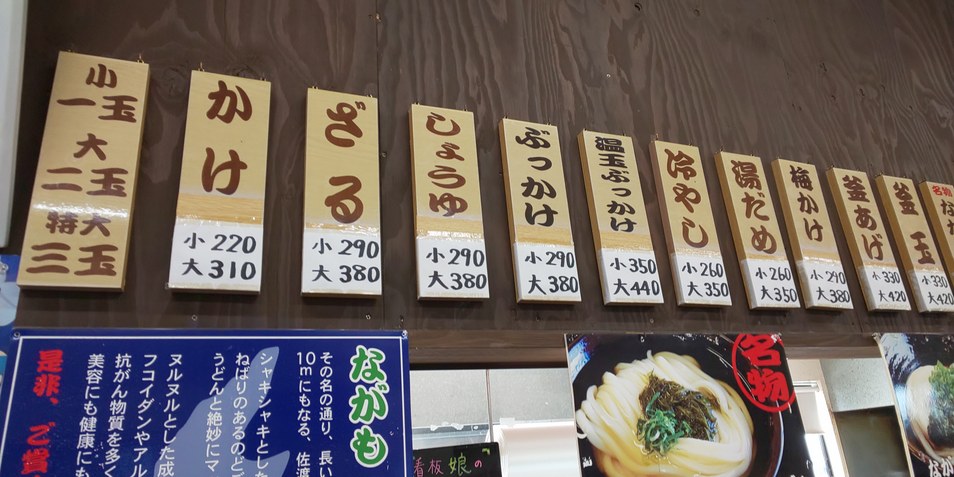 小
一玉
大
二玉
特大
三玉
かけ
小 220
大 310
ざる
小 290
大 380
しょうゆ
小 290
大 380
ぶっかけ
小 290
大 380
温玉ぶっかけ
小 350
大 440
冷やし
小 260
大 350
湯だめ
小 260
大 350
梅かけ
小 290
大 380
釜あげ
小 330
大 420
釜玉
小 330
大 420
名物
な
ながも
その名の通り、長い
10mにもなる、佐渡
シャキシャキとした
ねばりのあるのど
うどんと絶妙にマ
ヌルヌルとした成
フコイダンやアル
抗がん物質を多く
美容にも健康にも
是非、ご賞
看板娘の
名物
なが